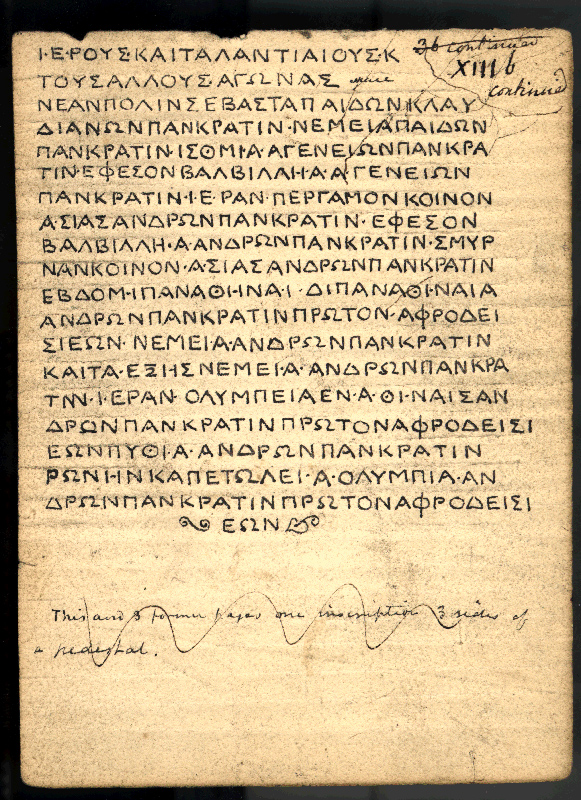 36 continued
XIII b
continued
Ι·ΕΡΟΥΣ·ΚΑΙΤΑΛΑΝΤΙΑΙΟΥΣ·Κ
ΤΟΥΣΑΛΛΟΥΣΑΓΩΝΑΣ
ΝΕΑΝΠΟΛΙΝΣΕΒΑΣΤΑΠΑΙΔΩΝΚΛΑΥ
ΔΙΑΝΩΝΠΑΝΚΡΑΤΙΝ·ΝΕΜΕΙΑΠΑΙΔΩΝ
ΠΑΝΚΡΑΤΙΝ·ΙΣΘΜΙΑ·ΑΓΕΝΕΙΩΝΠΑΝΚΡΑ
ΤΙΝ·ΕΦΕΣΟΝΒΑΛΒΙΛΛΗ·Α·ΑΓΕΝΕΙΩΝ
ΠΑΝΚΡΑΤΙΝ·Ι·ΕΡΑΝ·ΠΕΡΓΑΜΟΝΚΟΙΝΟΝ
Α·ΣΙΑΣΑΝΔΡΩΝΠΑΝΚΡΑΤΙΝ·ΕΦΕΣΟΝ
ΒΑΛΒΙΛΛΗ·Α·ΑΝΔΡΩΝΠΑΝΚΡΑΤΙΝ·ΣΜΥΡ
ΝΑΝΚΟΙΝΟΝ·ΑΣΙΑΣΑΝΔΡΩΝΠΑΝΚΡΑΤΙΝ
ΕΒΔΟΜ·ΙΠΑΝΑΘΗΝΑ·Ι·ΔΙΠΑΝΑΘΙ·ΝΑΙΑ
ΑΝΔΡΩΝΠΑΝΚΡΑΤΙΝΠΡΩΤΟΝ·ΑΦΡΟΔΕΙ
ΣΙΕΩΝ·ΝΕΜΕΙΑ·ΑΝΔΡΩΝΠΑΝΚΡΑΤΙΝ
ΚΑΙΤΑ·ΕΞΗΣΝΕΜΕΙ·Α·ΑΝΔΡΩΝΠΑΝΚΡΑ
ΤΙΝ·Ι·ΕΡΑΝ·ΟΛΥΜΠΕΙΑΕΝ·Α·ΘΙ·ΝΑΙΣΑΝ
ΔΡΩΝΠΑΝΚΡΑΤΙΝΠΡΩΤΟΝΑΦΡΟΔΕΙΣΙ
ΕΩΝΠΥΘΙ·Α·ΑΝΔΡΩΝΠΑΝΚΡΑΤΙΝ
ΡΩΝΗΝΚΑΠΕΤΩΛΕΙ·Α·ΟΛΥΜΠΙΑ·ΑΝ
ΔΡΩΝΠΑΝΚΡΑΤΙΝΠΡΩΤΟΝΑΦΡΟΔΕΙΣΙ
ΕΩΝ
This and 3 former pages one inscription 3 sides of
a pedestal.